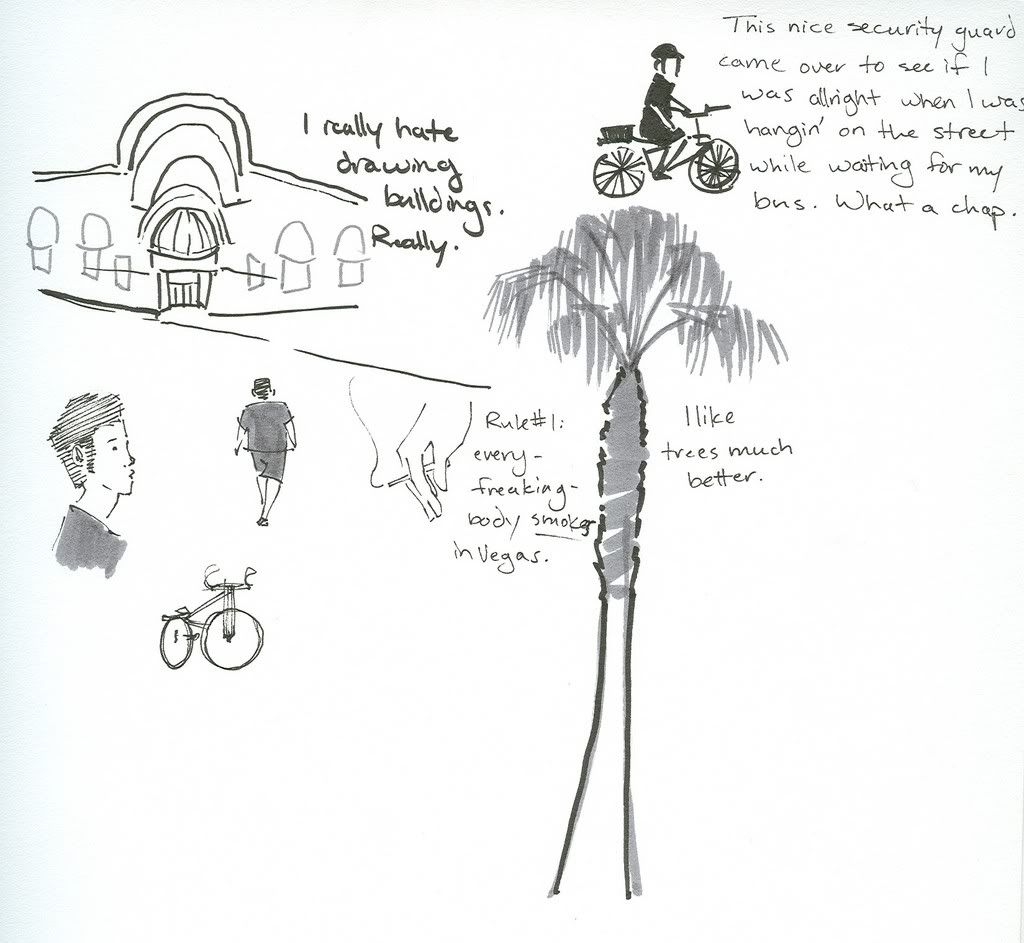 This nice security guard
came over to see if I
was allright when I was
hangin' on the street
while waiting for my
bus. What a chap.
I really hate
drawing
buildings.
Really.
Rule #1:
every-
freaking-
body smokes
in Vegas.
I like
trees much
better.